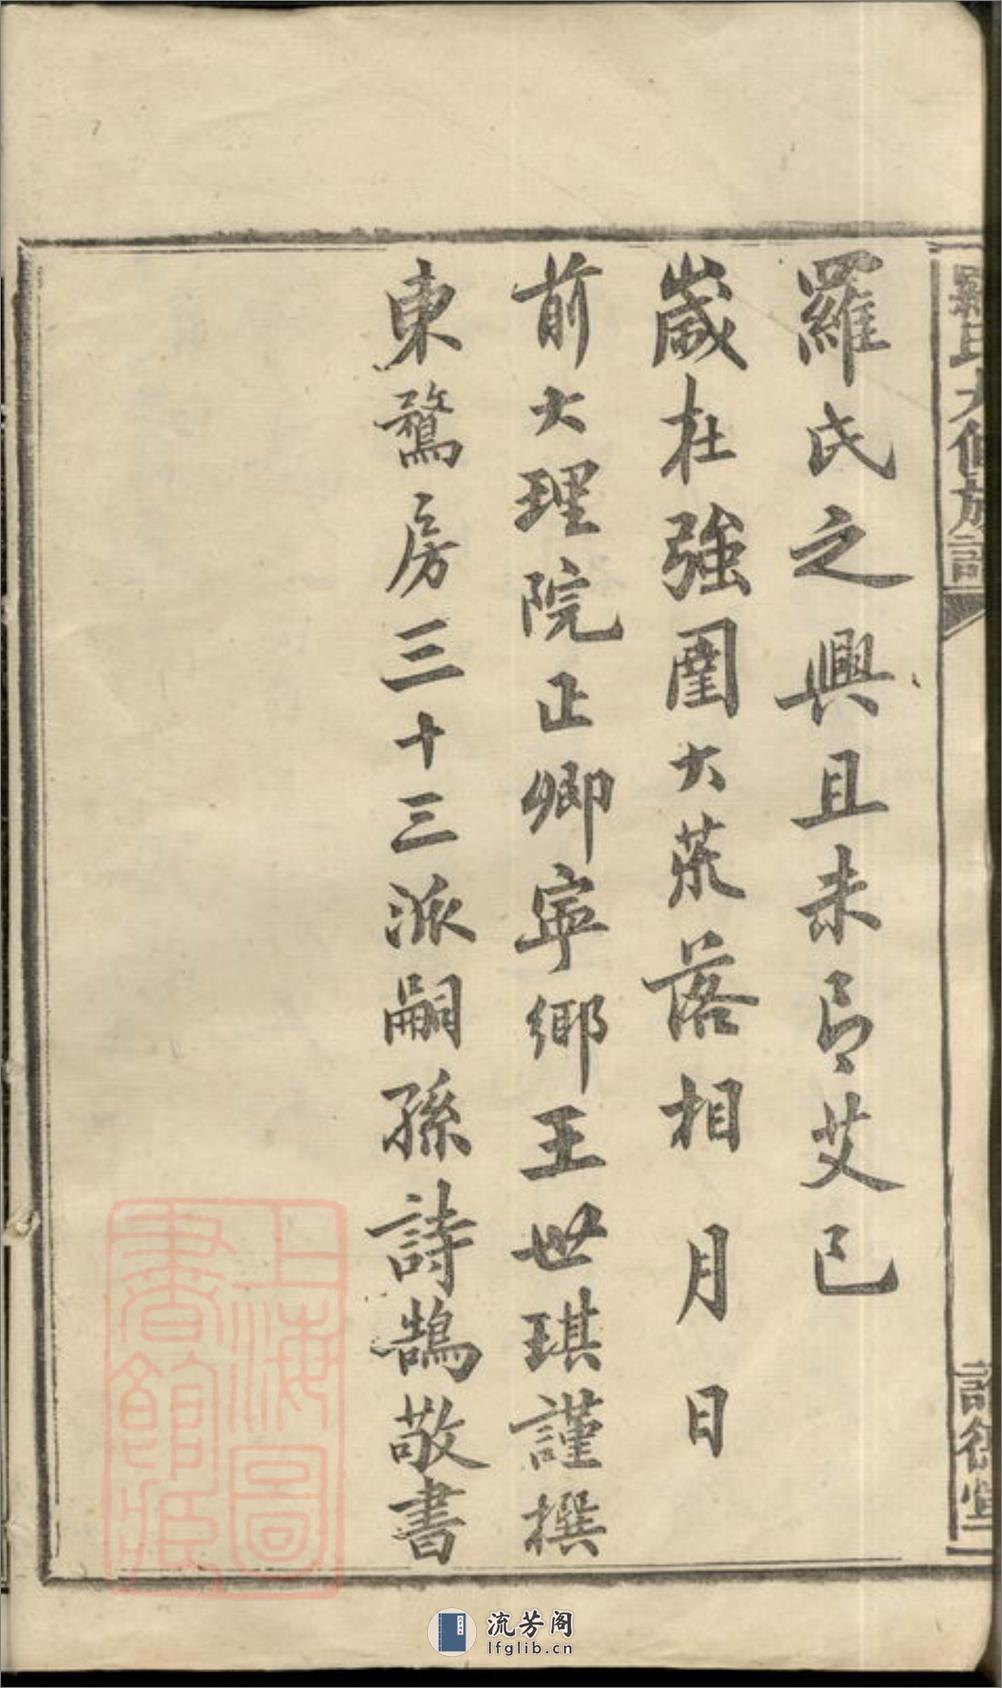 羅氏大修族譜
羅氏之興且未有艾已
歲在強圉大荒落相 月 日
前大理院正卿寧鄉王世琪謹撰
東鶩房三十三派嗣孫詩鵠敬書
上海圖
書館藏
流芳阁
lfglib.cn